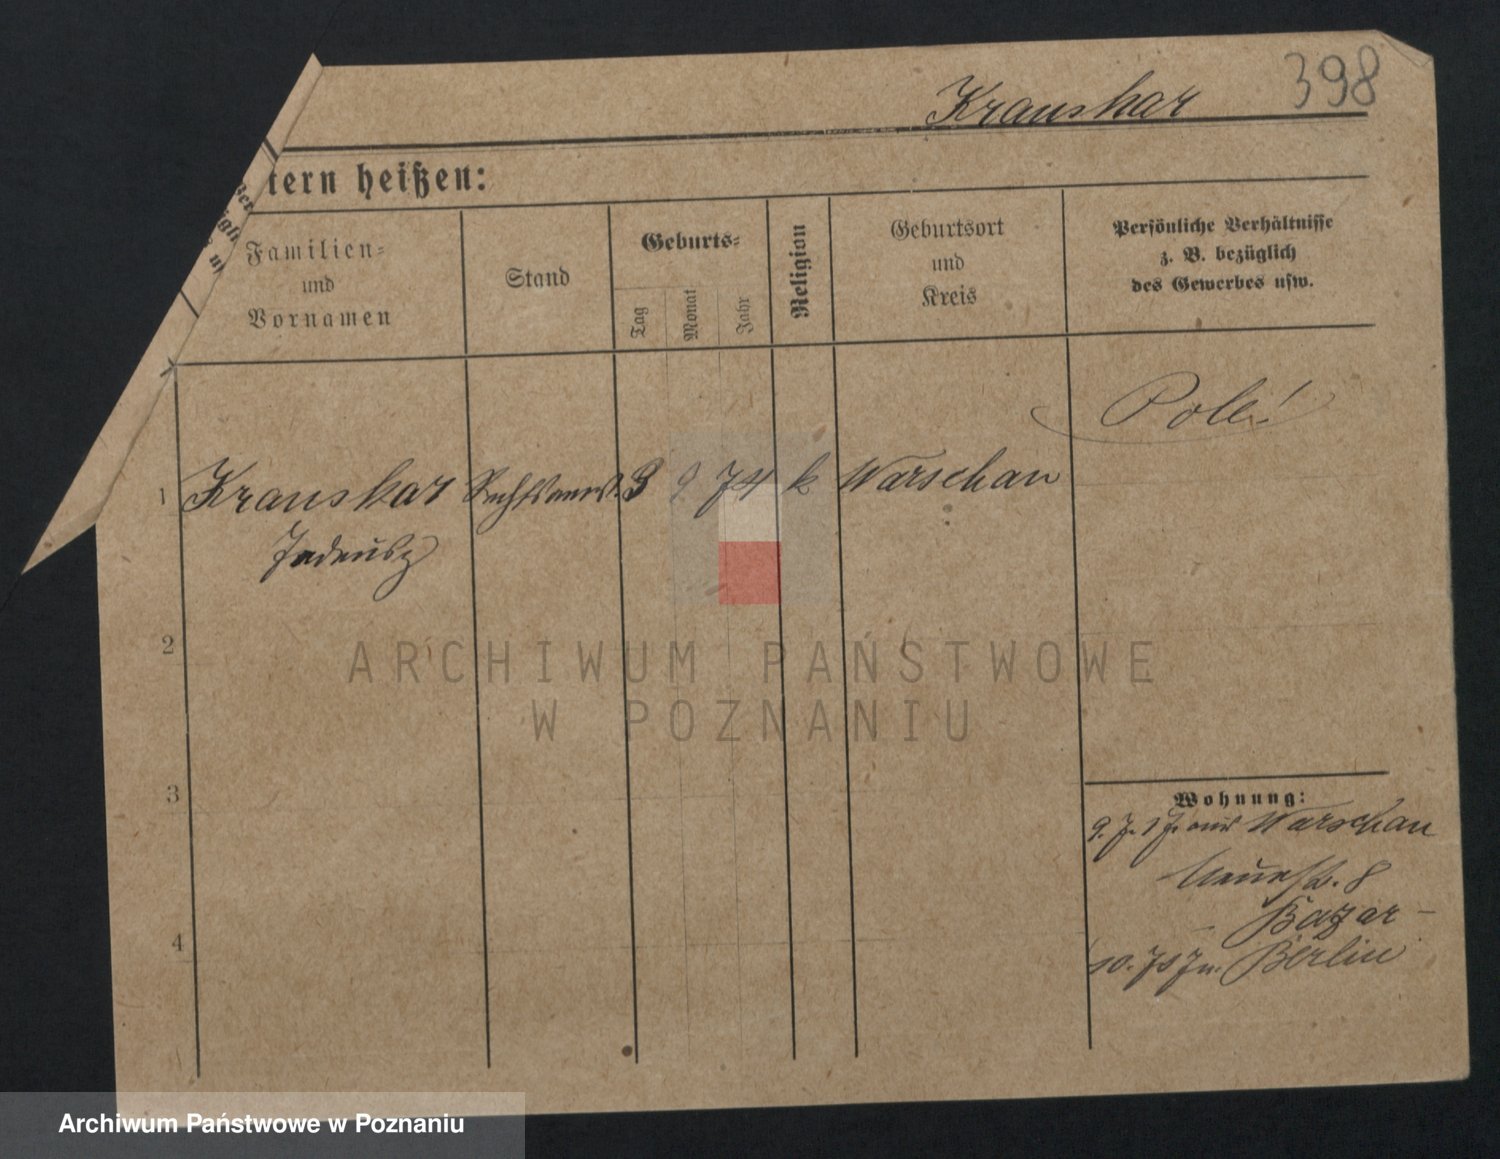 398
Kraushar
tern heißen:
Familien-
und
Vornamen
Stand
Geburts-
Tag
Monat
Jahr
Religion
Geburtsort
und
Kreis
Persönliche Verhältnisse
z. B. bezüglich
des Gewerbes usw.
Pole!
1 Kraushar Rechtsanw. 3 9 74 k Warschau
Tadeusz
2
3
4
Wohnung:
aus Warschau
8
Bazar -
Berlin
ARCHIWUM PAŃSTWOWE
W POZNANIU
Archiwum Państwowe w Poznaniu